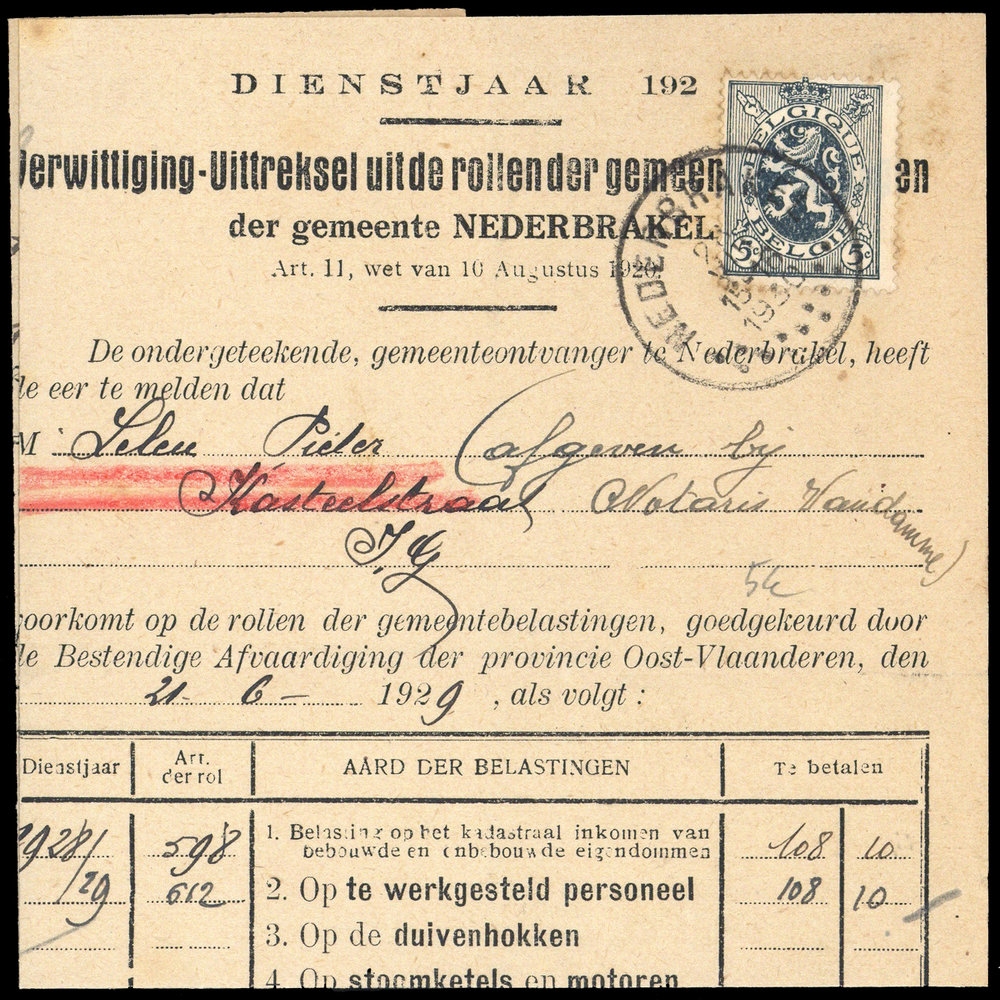 DIENSTJAAR 192
Verwittiging-Uittreksel uit de rollen der gemeen en
der gemeente NEDERBRAKEL
Art. 11, wet van 10 Augustus 1920.
BELGIQUE
BELGIE
5c 5c
NEDERBRA
15
1930
De ondergeteekende, gemeenteontvanger te Nederbrakel, heeft
de eer te melden dat
M Pieter (afgeven bij
Kasteelstraat Notaris Vandamme)
voorkomt op de rollen der gemeentebelastingen, goedgekeurd door
de Bestendige Afvaardiging der provincie Oost-Vlaanderen, den
21 - 6 - 1929, als volgt :
Dienstjaar Art. der rol AARD DER BELASTINGEN Te betalen
1928/ 598 1. Belasting op het kadastraal inkomen van 108 10
bebouwde en onbebouwde eigendommen
/29 612 2. Op te werkgesteld personeel 108 10
3. Op de duivenhokken
4. Op stoomketels en motoren